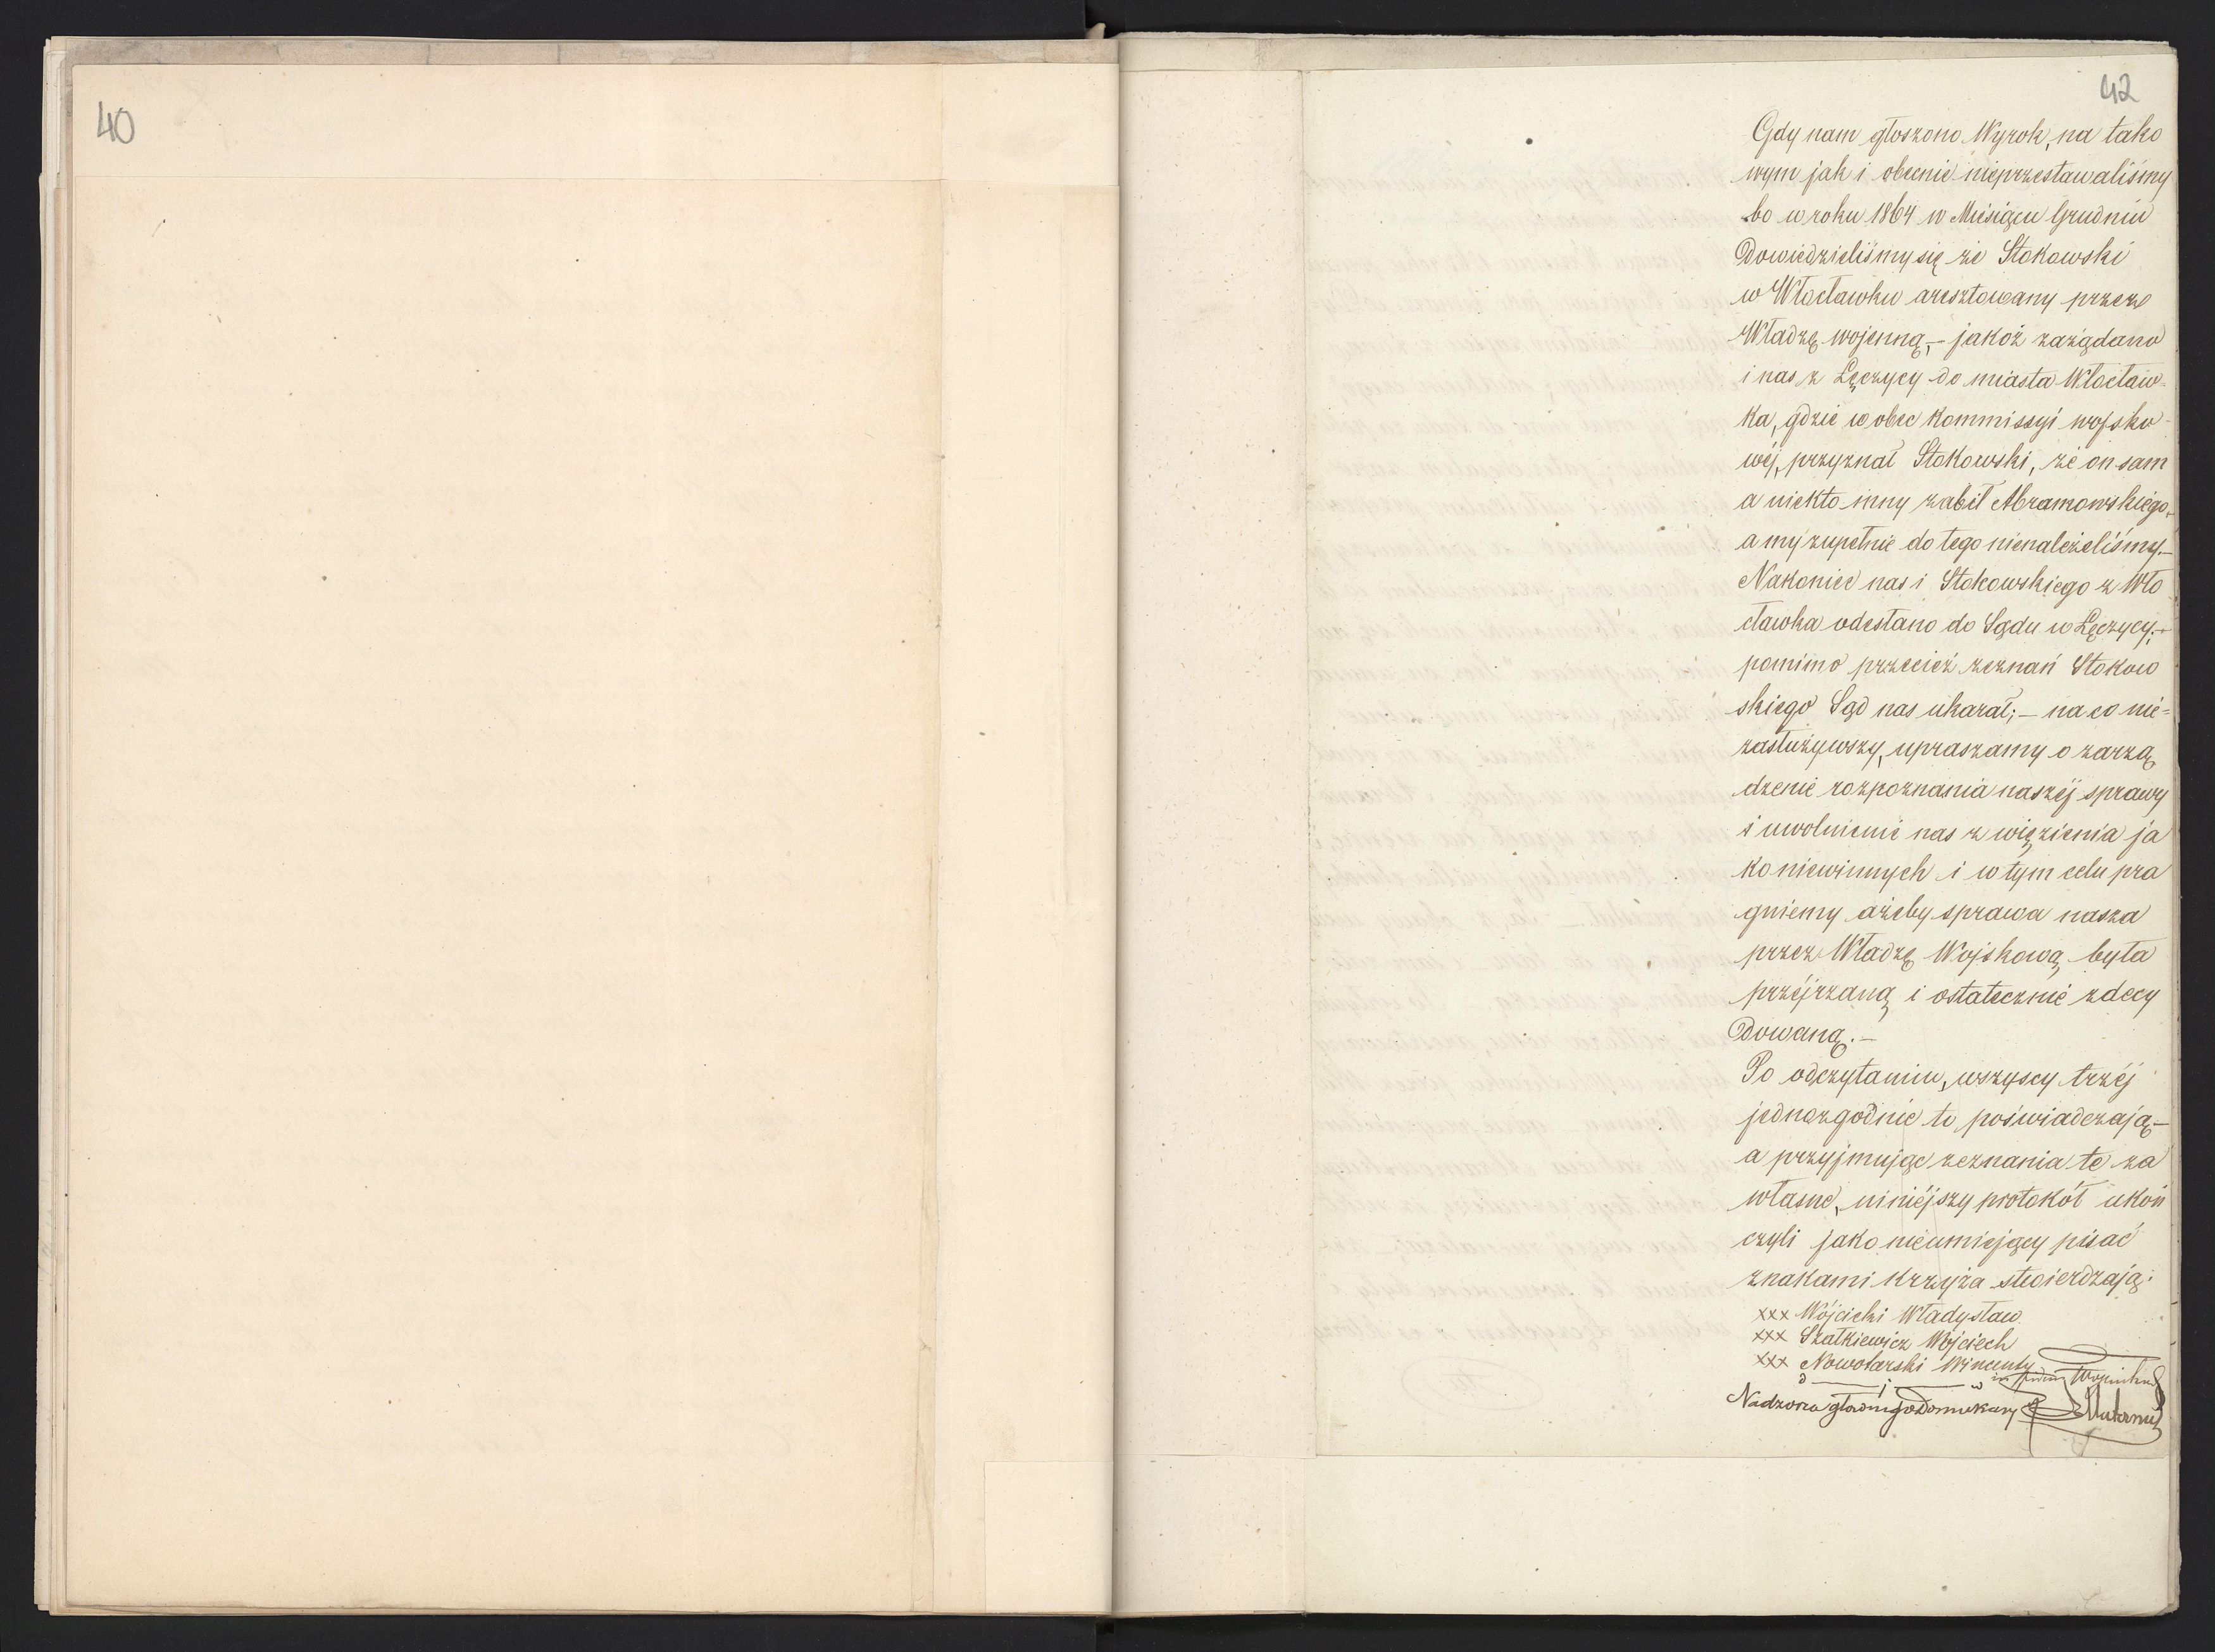 40
42
Gdy nam głoszono Wyrok, na tako
wym jak i obecnie nieprzestawaliśmy
bo w roku 1864 w Miesiącu Grudniu
Dowiedzieliśmy się że Stokowski
w Włocławku aresztowany przez
Władzę wojenną,– jakoż zażądano
i nas z Łęczycy do miasta Włocław=
ka, gdzie wobec Kommissyi wojsko-
wéj, przyznał Stokowski, że on sam
a niekto inny zabił Abramowskiego,
a my zupełnie do tego nienależeliśmy.–
Nakoniec nas i Stokowskiego z Wło
cławka odesłano do Sądu w Łęczycy;–
pomimo przecież zeznań Stokow
skiego Sąd nas ukarał; – na co nie=
zasłużywszy, upraszamy o zarzą
dzenie rozpoznania naszéj sprawy
i uwolnienie nas z więzienia ja
ko niewinnych i w tym celu pra
gniemy ażeby sprawa nasza
przez Władzę Wojskową była
przéjrzaną i ostatecznie zdecy
dowaną.–
Po odczytaniu, wszyscy trzéj
jednozgodnie to poświadczają–
a przyjmując zeznania te za
własne, niniéjszy protokół ukoń
czyli jako nieumiejący pisać
znakami krzyża stwierdzają:
xxx Wójcicki Władysław
xxx Szatkiewicz Wojciech
xxx Nowolarski Wincenty
Nadzorca głównego Domu Kary